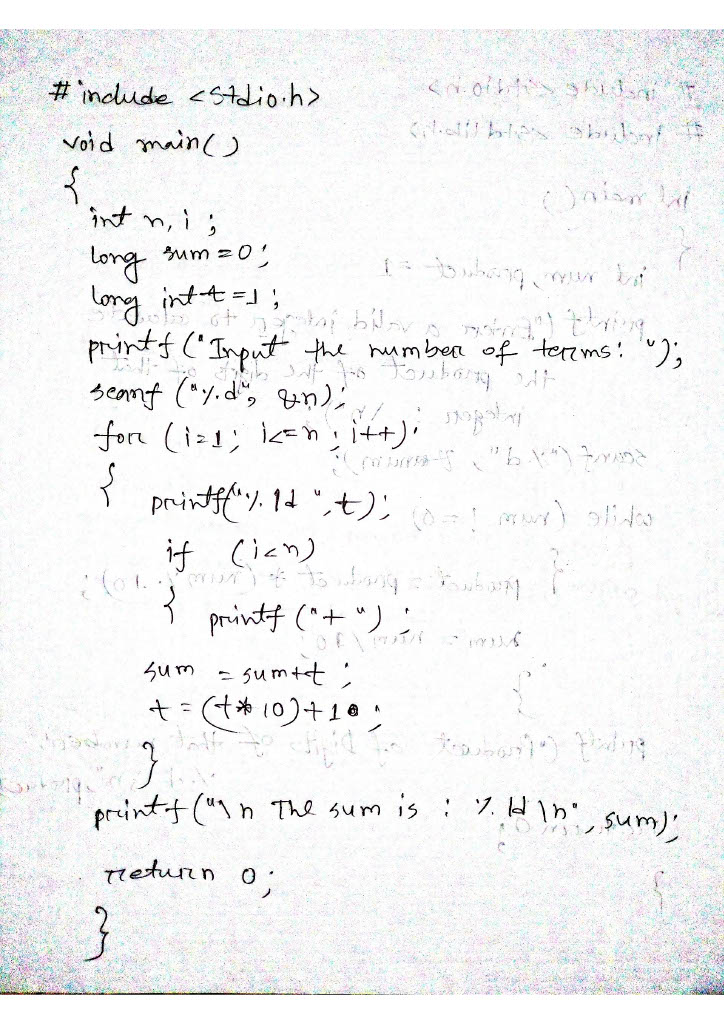 #include <stdio.h>
void main()
{
int n, i ;
long sum = 0;
long int t = 1 ;
printf ("Input the number of terms: ");
scanf ("%d", &n);
for (i=1; i<=n ; i++);
{ printf("%ld ", t);
if (i<n)
{ printf ("+ ") ;
sum = sum+t ;
t = (t*10)+10 ;
}
printf ("\n The sum is : %ld\n", sum);
return 0;
}